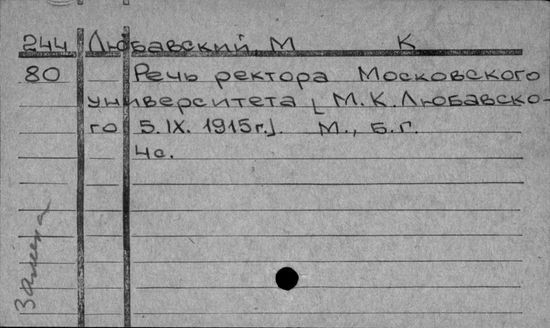 244 Любавский, М К
80 Речь ректора Московского
университета [М.К.Любавско-
го 5.IX.1915г.]. М., б.г.
4с.
Замена